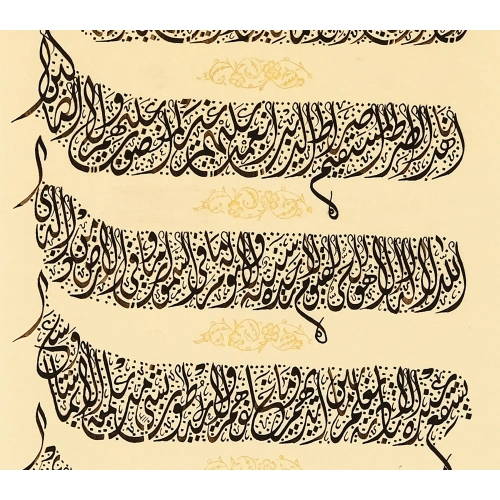 اهدنا الصراط المستقيم صراط الذين أنعمت عليهم غير المغضوب عليهم ولا الضالين
الله لا إله إلا هو الحي القيوم لا تأخذه سنة ولا نوم له ما في السموات وما في الأرض من ذا الذي
يشفع عنده إلا بإذنه يعلم ما بين أيديهم وما خلفهم ولا يحيطون بشيء من علمه إلا بما شاء وسع